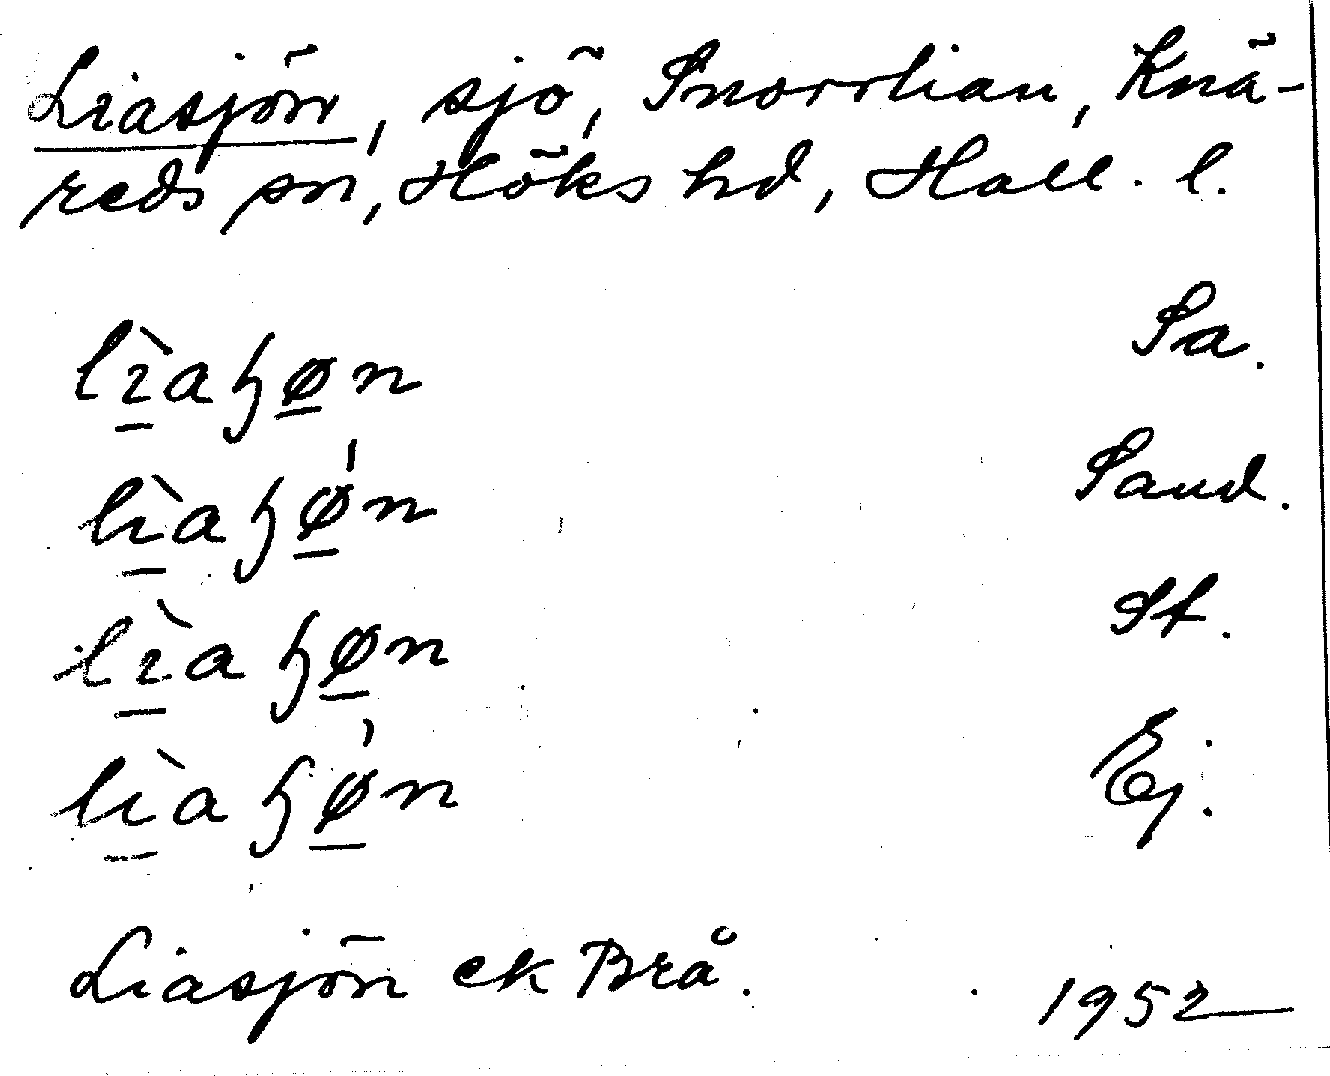 Liasjön, sjö, Snorrlian, Knä-
reds sn, Höks hd, Hall. l.
lìaɧøn Sa.
lìaɧǿn Sand.
lìaɧøn St.
lìaɧǿn Ej.
Liasjön ek Brå. 1952